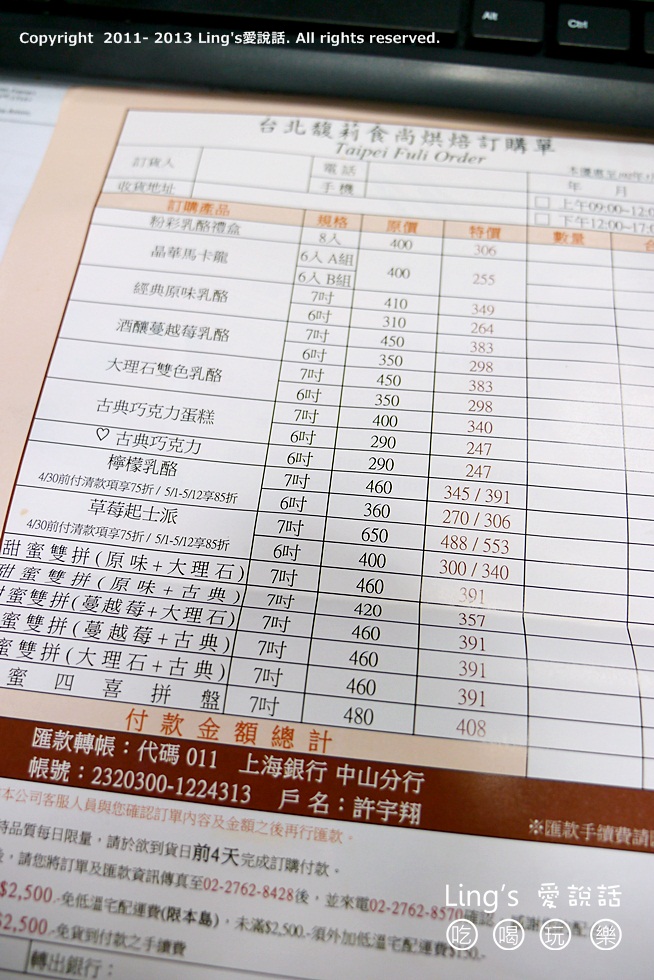 Copyright 2011- 2013 Ling's愛說話. All rights reserved.
Alt
Ctrl
台北馥莉食尚烘焙訂購單
Taipei Fuli Order
訂貨人 電話
收貨地址 手機 年 月
□ 上午09:00~12:0
□ 下午12:00~17:0
訂購產品 規格 原價 特價 數量
粉彩乳酪禮盒 8入 400 306
晶華馬卡龍 6入 A組 400 255
6入 B組
經典原味乳酪 7吋 410 349
6吋 310 264
酒釀蔓越莓乳酪 7吋 450 383
6吋 350 298
大理石雙色乳酪 7吋 450 383
6吋 350 298
古典巧克力蛋糕 7吋 400 340
6吋 290 247
♡ 古典巧克力 6吋 290 247
檸檬乳酪 7吋 460 345 / 391
4/30前付清款項享75折 / 5/1-5/12享85折 6吋 360 270 / 306
草莓起士派 7吋 650 488 / 553
4/30前付清款項享75折 / 5/1-5/12享85折 6吋 400 300 / 340
甜蜜雙拼(原味+大理石) 7吋 460 391
甜蜜雙拼(原味+古典) 7吋 420 357
蜜雙拼(蔓越莓+大理石) 7吋 460 391
蜜雙拼(蔓越莓+古典) 7吋 460 391
蜜雙拼(大理石+古典) 7吋 460 391
蜜四喜拼盤 7吋 480 408
付款金額總計
匯款轉帳：代碼 011 上海銀行 中山分行
帳號：2320300-1224313 戶名：許宇翔
※匯款手續費請
本公司客服人員與您確認訂單內容及金額之後再行匯款。
品質每日限量，請於欲到貨日前4天完成訂購付款。
，請您將訂單及匯款資訊傳真至02-2762-8428後，並來電02-2762-8570確認
$2,500.-免低溫宅配運費(限本島)，未滿$2,500.-須外加低溫宅配運費$150.-
$2,500.-免貨到付款之手續費
轉出銀行：
Ling's 愛說話
吃喝玩樂